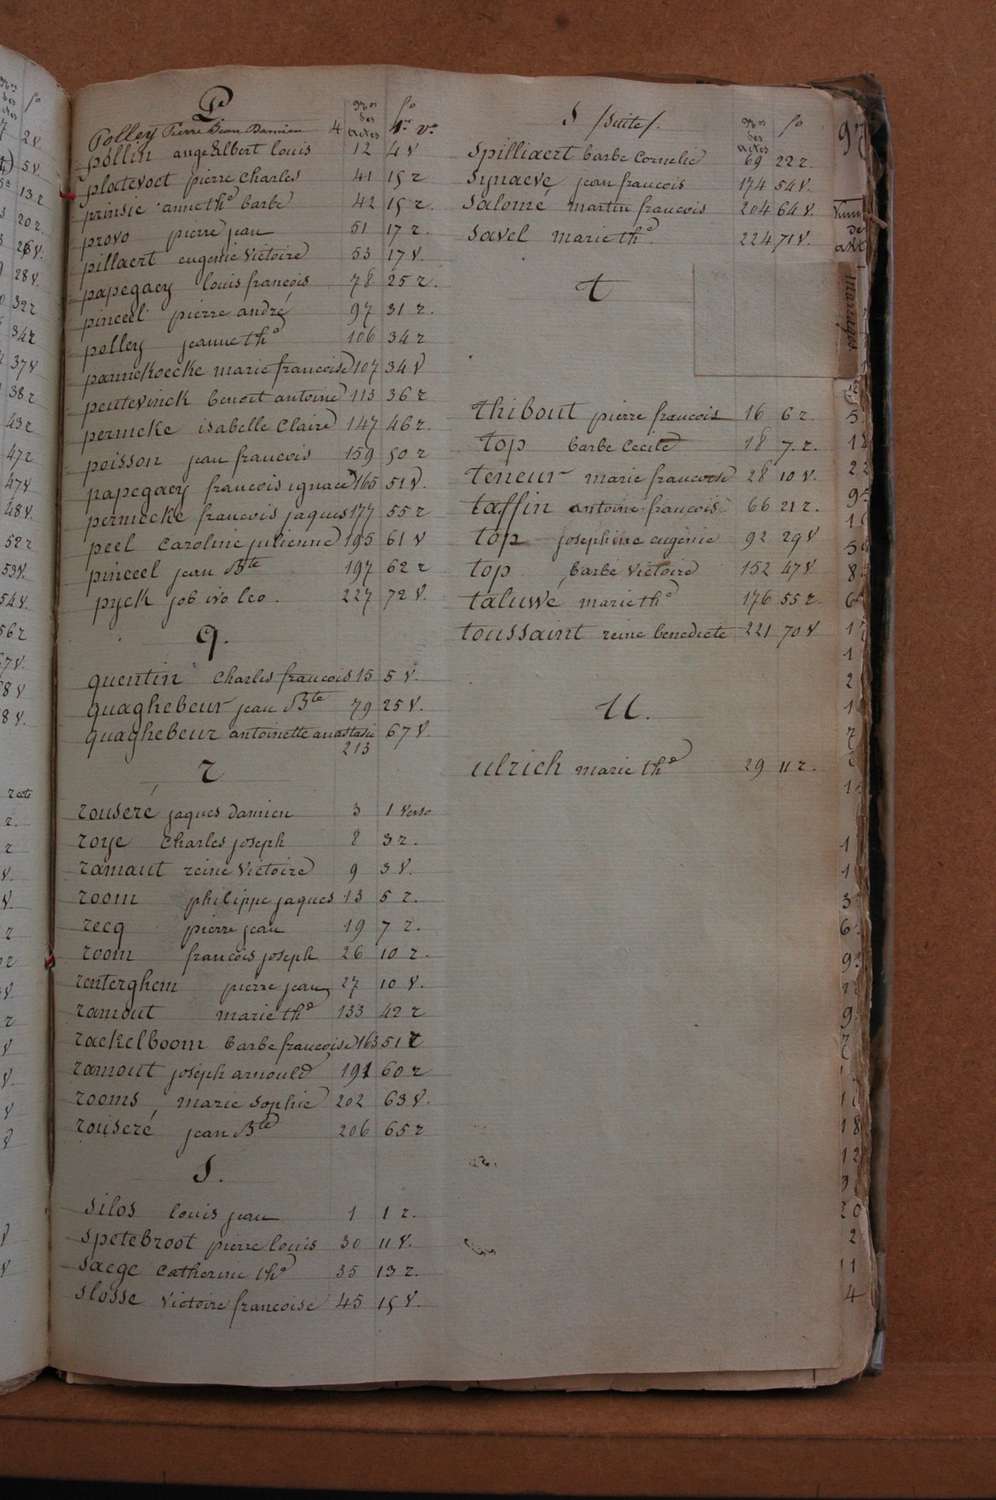 P
nos des actes fo
Polley Pierre Jean Damien 4 1er vo
pollin ange albert louis 12 4 v
platevoet pierre Charles 41 15 r
prinsie anne the barbe 42 15 r.
provo pierre jean 51 17 r.
pillaert eugenie Victoire 53 17 v.
papegaey louis françois 78 25 r.
pinceel pierre andré 97 31 r.
polley jeanne the 106 34 r
pannekoecke marie francoise 107 34 v
peutevinck benoit antoine 113 36 r
pernicke isabelle Claire 147 46 r.
poisson jean francois 159 50 r
papegaey francois ignace 165 51 v.
pernicke francois jaques 177 55 r
peel Caroline julienne 195 61 v
pinceel jean Bte 197 62 r
pyck job ivo leo. 227 72 v.
q.
quentin Charles francois 15 5 v.
quaghebeur jean Bte 79 25 v.
quaghebeur antoinette anastasie 213 67 v.
r
rouseré jaques damien 3 1 verso
roye Charles joseph 8 3 r.
ramaut reine Victoire 9 3 v.
room philippe jaques 13 5 r.
recq pierre jean 19 7 r.
room francois joseph 26 10 r.
renterghem pierre jean 27 10 v.
ramout marie the 133 42 r
rackelboom barbe francoise 163 51 r
ramout joseph arnould 191 60 r
rooms, marie Sophie 202 63 v.
rouseré jean Bte 206 65 r
S.
silos louis jean 1 1 r.
spetebroot pierre louis 30 11 v.
saege Catherine the 35 13 r.
slosse Victoire francoise 45 15 v.
S (suite).
nos des actes fo
spilliaert barbe Cornelie 69 22 r.
synaeve jean francois 174 54 v.
salomé martin francois 204 64 v.
savel marie the 224 71 v.
t
thibout pierre francois 16 6 r.
top barbe Cecile 18 7. r.
teneur marie francoise 28 10 v.
taffin antoine francois 66 21 r.
top josephine eugenie 92 29 v
top barbe victoire 152 47 v
taluwé marie the 176 55 r.
toussaint reine benedicte 221 70 v
U.
ulrich marie the 29 11 r.
97
mariages